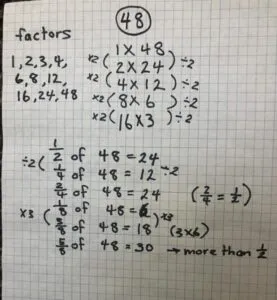 48
factors
1, 2, 3, 4,
6, 8, 12,
16, 24, 48
1 × 48
×2 ( 2 × 24 ) ÷2
×2 ( 4 × 12 ) ÷2
×2 ( 8 × 6 ) ÷2
×2 ( 16 × 3 ) ÷2
÷2 ( 1/2 of 48 = 24
1/4 of 48 = 12 ) ÷2
2/4 of 48 = 24 ( 2/4 = 1/2 )
×3 ( 1/8 of 48 = 6 ) ×3
3/8 of 48 = 18 (3×6)
5/8 of 48 = 30 → more than 1/2